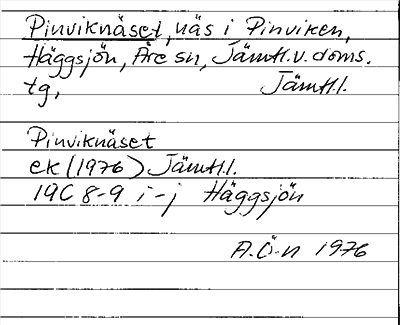 Pinviknäset, näs i Pinviken,
Häggsjön, Åre sn, Jämtl.v.doms.
tg, Jämtl.l.
Pinviknäset
ek (1976) Jämtl.l.
19C 8-9 i-j Häggsjön
A.Ö-n 1976